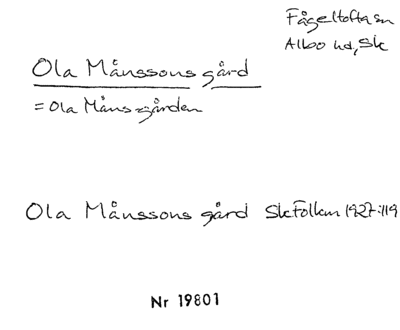 Fågeltofta sn
Albo hd, Sk
Ola Månssons gård
= Ola Måns-gården
Ola Månssons gård SkFolkm 1927:119
Nr 19801